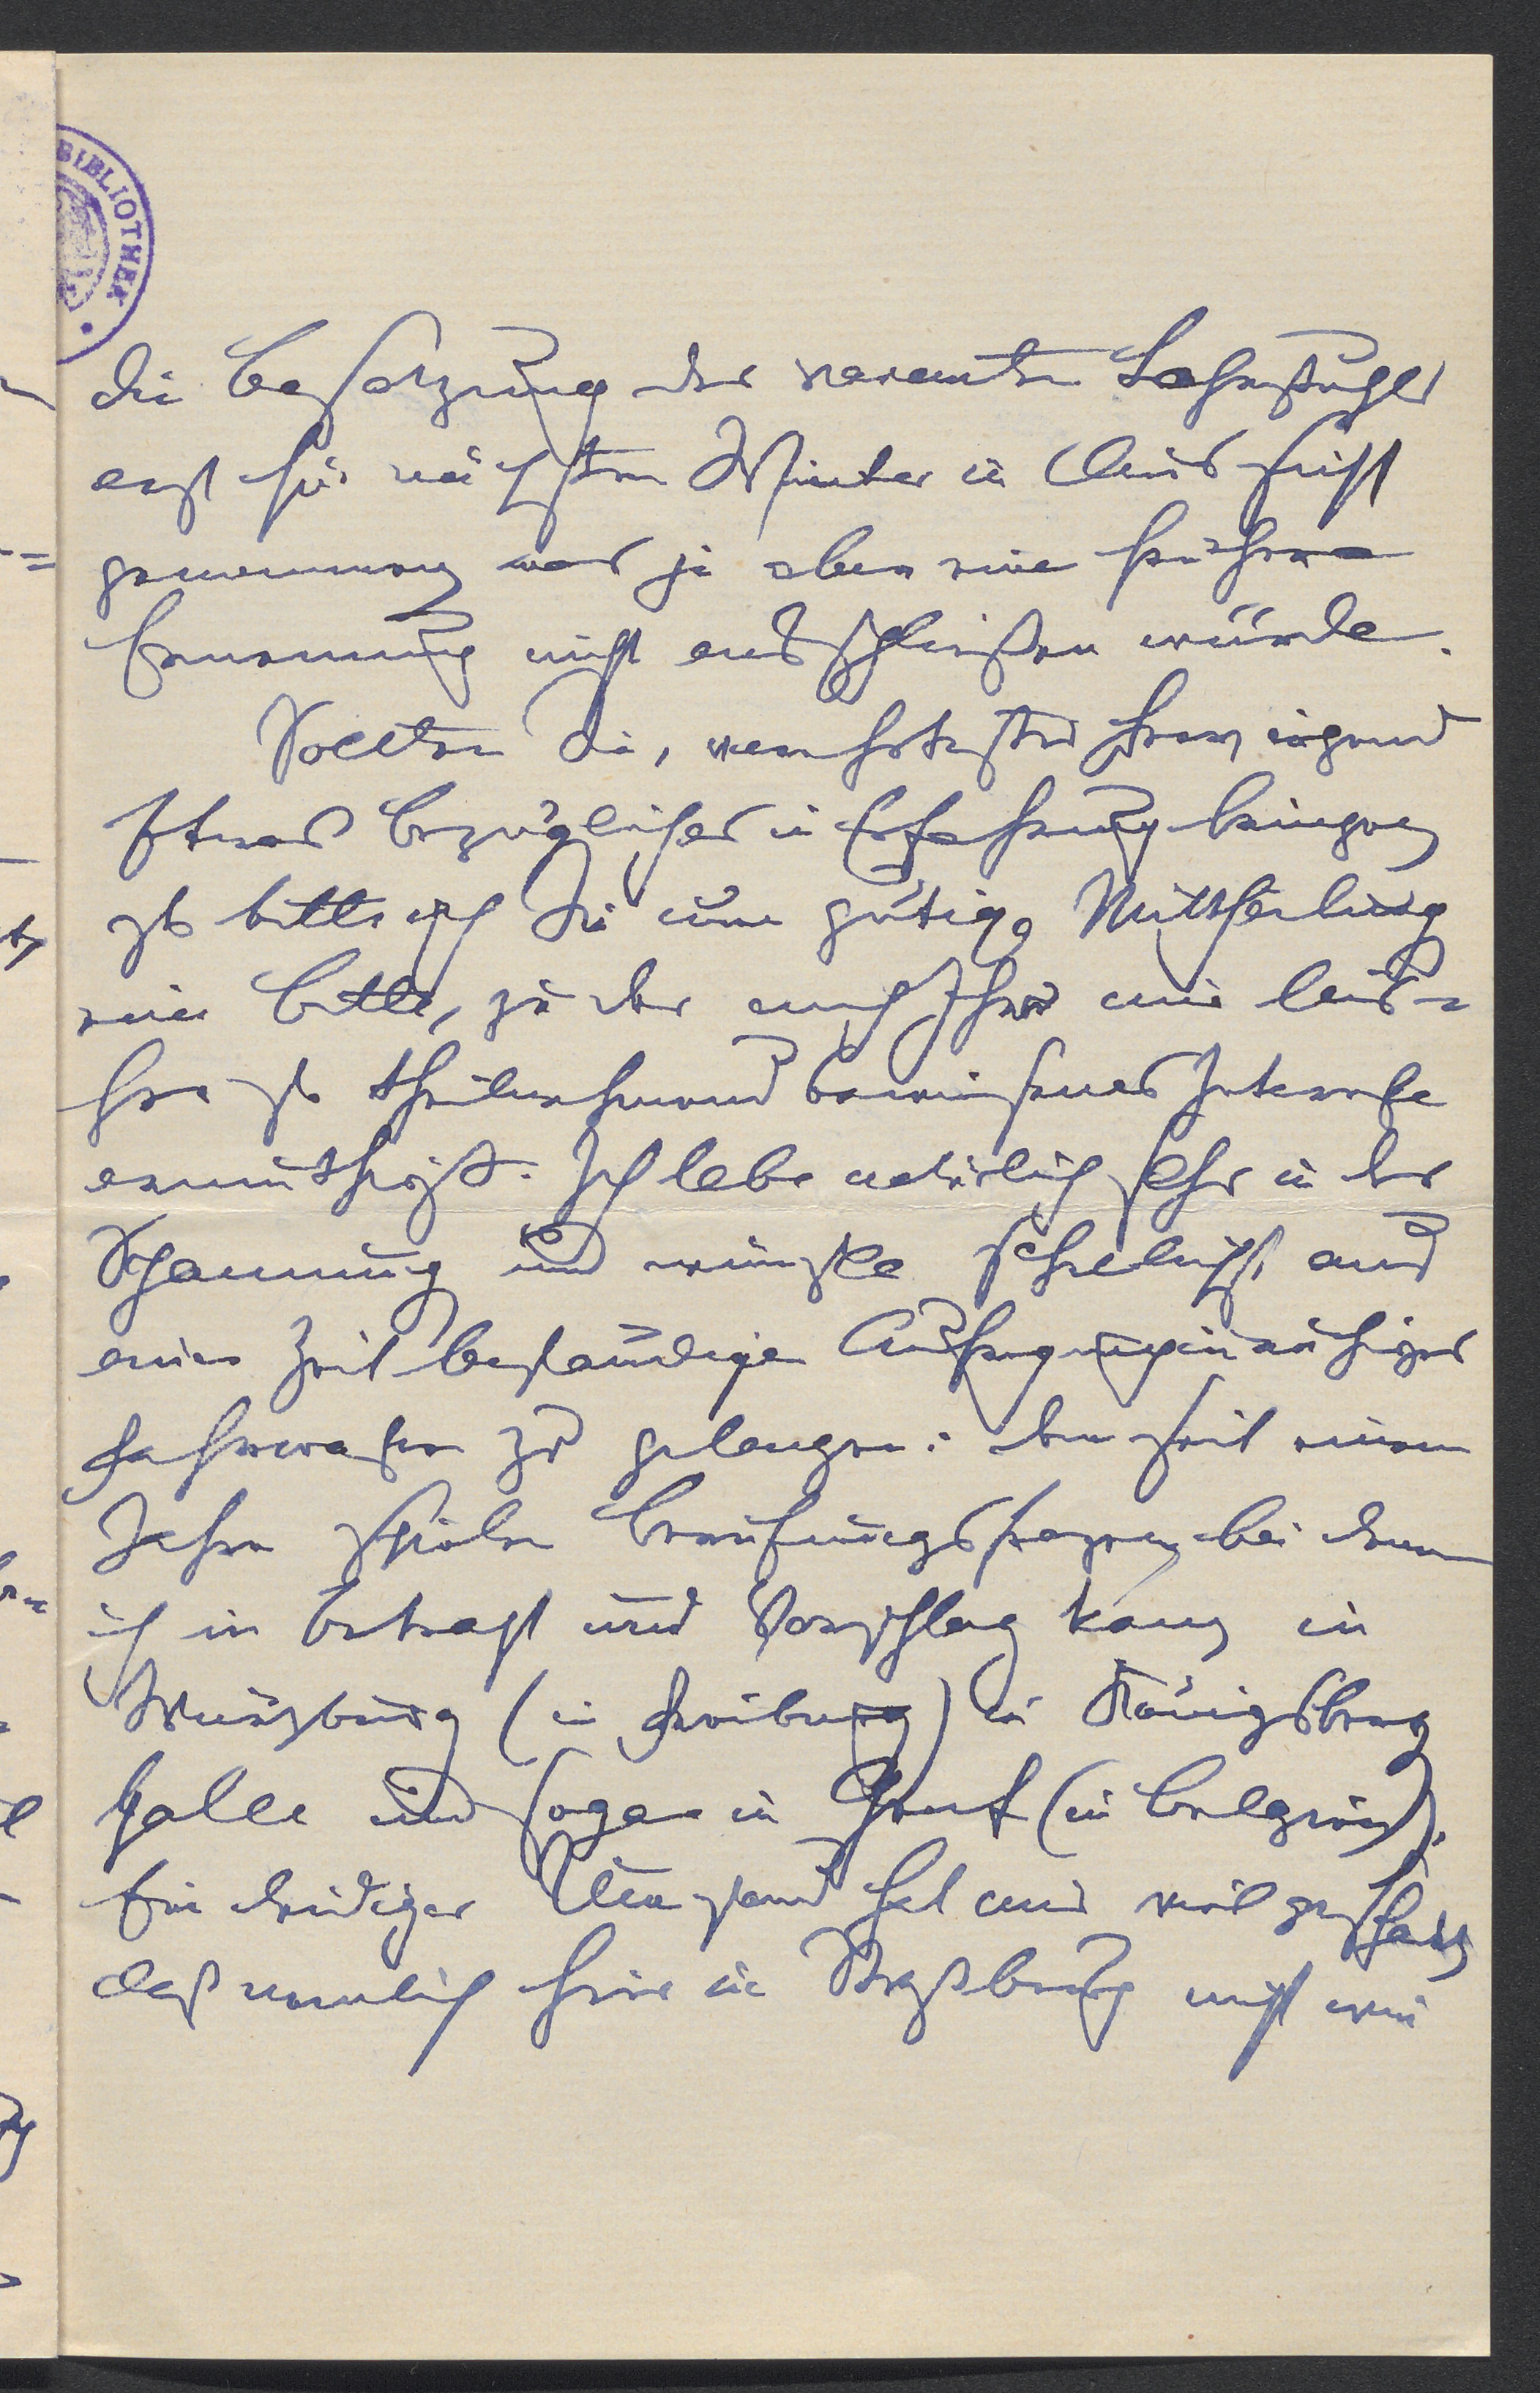 BIBLIOTHEK
die Besetzung des vacanten Lehrstuhles
erst für nächsten Winter in Aussicht
genommen was ja aber eine frühere
Ernennung nicht ausschließen würde.
Sollten Sie, verehrtester Herr irgend
Etwas bezügliches in Erfahrung bringen
so bitte ich Sie um gütige Mittheilung
eine Bitte, zu der mich Ihr mir bis=
her so theilnehmend bewiesenes Interesse
ermuthigt. Ich lebe natürlich sehr in der
Spannung und wünsche sehnlichst aus
einer Zeit beständiger Aufregung in ruhiges
Fahrwasser zu gelangen: denn seit einem
Jahre spielen Berufungsfragen bei denen
ich in Betracht und Vorschlag kam in
Würzburg (in Freiburg) in Königsberg
Halle und sogar in Gent (in Belgien).
Ein leidiger Umstand hat mir viel geschadet
daß nemlich hier in Straßburg nicht wie